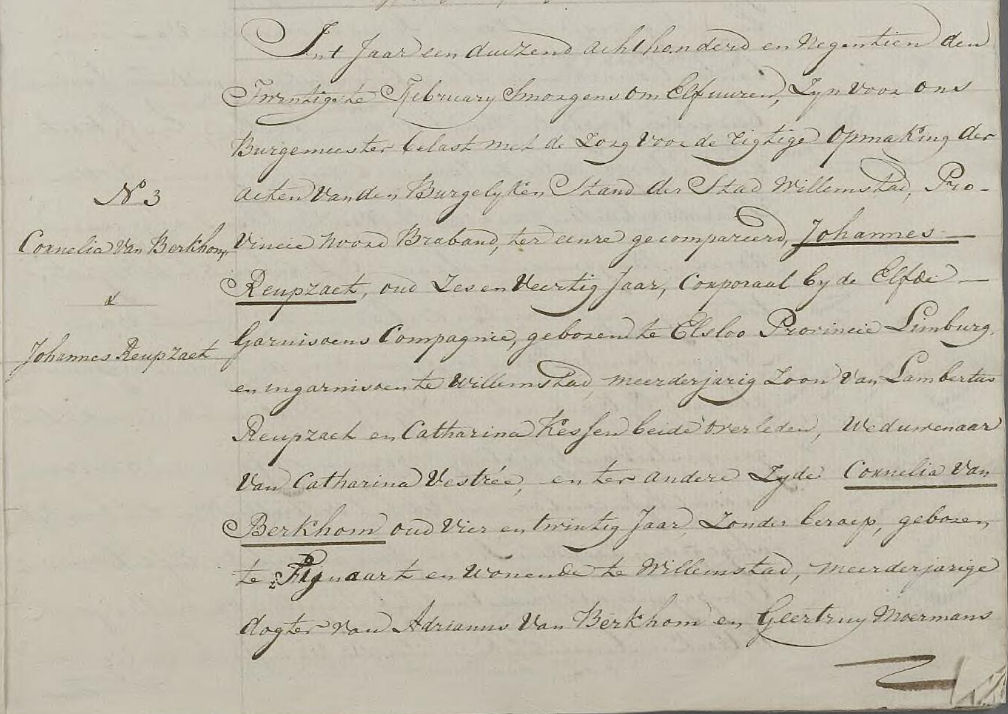 Int Jaar een duizend achthonderd en Negentien den
Twintigste February Smorgens om Elf uuren, Zyn voor ons
Burgemeester belast met de Zorg voor de rigtige Opmaking der
acten Van den Burgelyken Stand der Stad Willemstad, Pro-
Vincie Noord Braband, ter eenre gecompareerd, Johannes
Reupzaet, oud Zes en Veertig Jaar, Corporaal by de Elfde
Garnisoens Compagnie, geboren te Elsloo Provincie Limburg
en ingarnisoen te Willemstad, meerderjarig Zoon Van Lambertus
Reupzaet en Catharina Kessen beide overleden, Weduwenaar
Van Catharina Vestrée, en ter andere Zyde Cornelia Van
Berkhom oud Vier en twintig Jaar, Zonder beroep, geboren
te Fijnaart en wonende te Willemstad, meerderjarige
dogter van Adrianus Van Berkhom en Geertruy Moermans
No 3
Cornelia Van Berkhom
&
Johannes Reupzaet